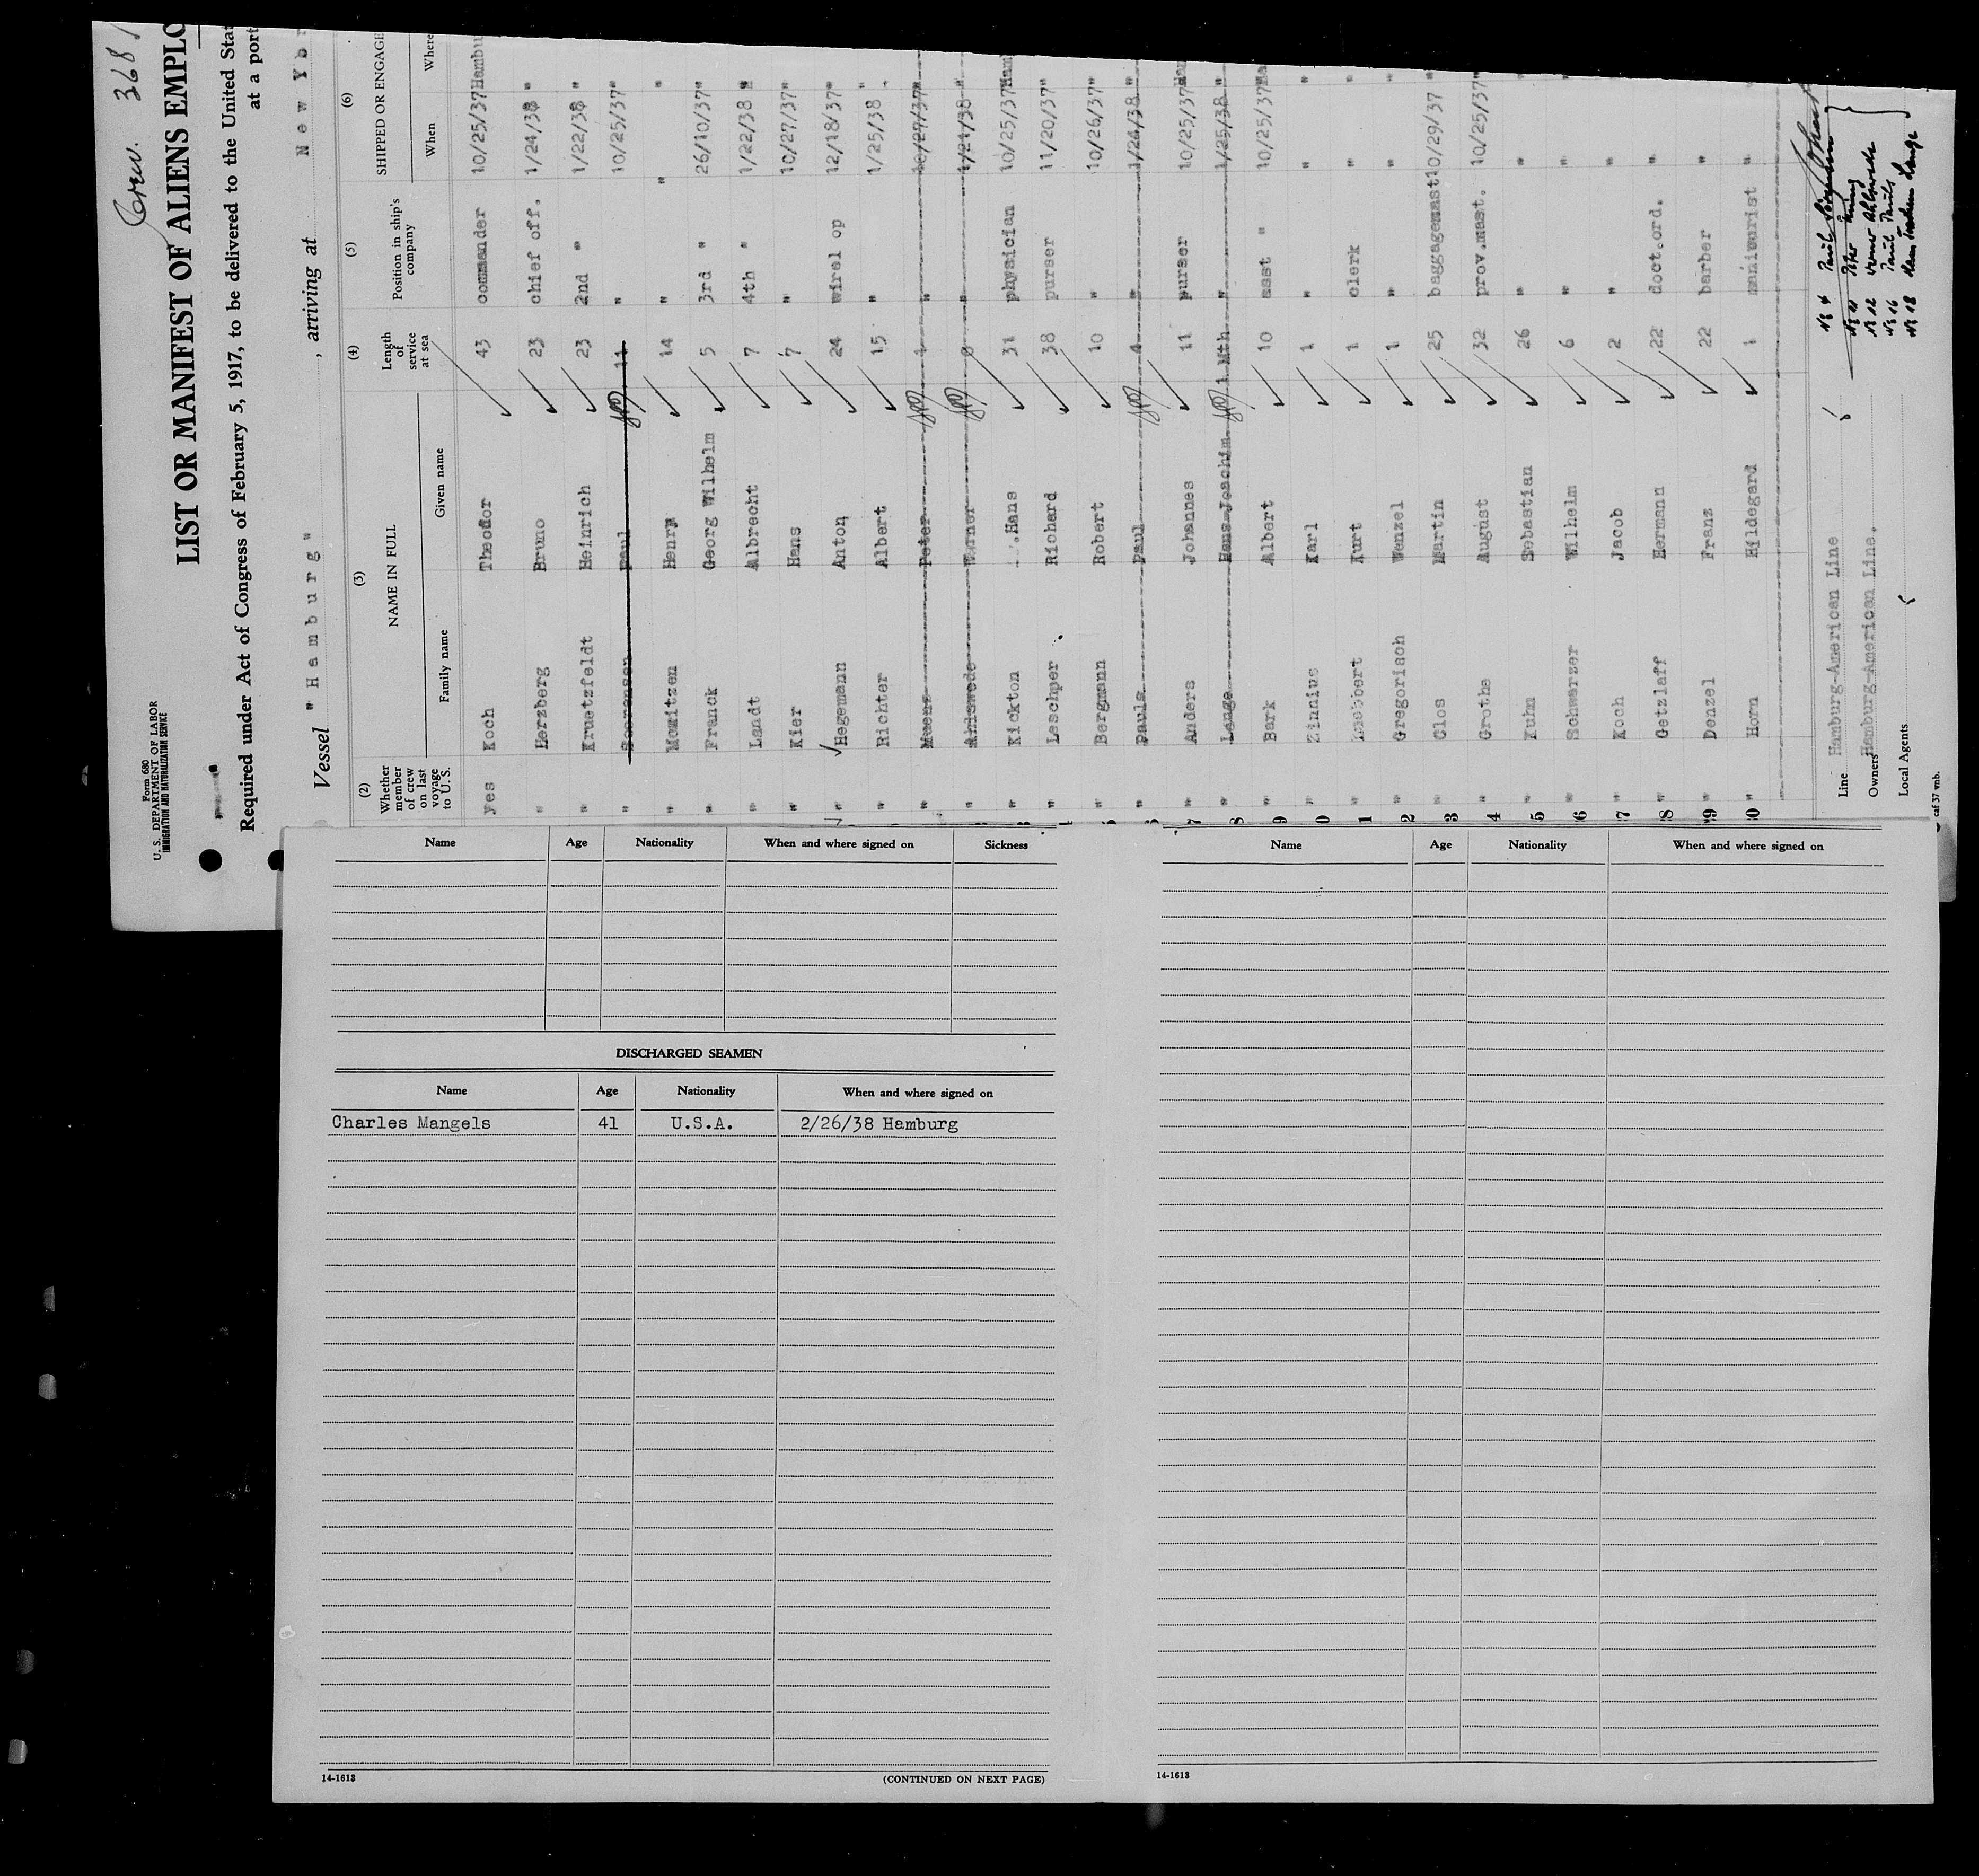 Crew. 3681
LIST OR MANIFEST OF ALIENS EMPLO
Form 680
U. S. DEPARTMENT OF LABOR
IMMIGRATION AND NATURALIZATION SERVICE
Required under Act of Congress of February 5, 1917, to be delivered to the United Sta
at a port
Vessel "Hamburg" , arriving at New Yor
(2) (3) (4) (5) (6)
Whether member of crew on last voyage to U.S. NAME IN FULL Length of service at sea Position in ship's company SHIPPED OR ENGAGE
Family name Given name When Where
yes Koch Theodor 43 commander 10/25/37 Hambu
" Herzberg Bruno 23 chief off. 1/24/38 "
" Kruetzfeldt Heinrich 23 2nd " 1/22/38 "
" Soerensen Paul 11 " 10/25/37 "
" Momitzen Henry 14 " " "
" Franck Georg Wilhelm 5 3rd " 26/10/37 "
" Landt Albrecht 7 4th " 1/22/38 "
" Kier Hans 7 " 10/27/37 "
" Hegemann Anton 24 wirel op 12/18/37 "
" Richter Albert 15 " 1/25/38 "
" Peter " 10/27/37 "
" Ahlswede Werner " 1/21/38 "
" Kickton Hans 31 physician 10/25/37 Ham
" Leschper Richard 38 purser 11/20/37 "
" Bergmann Robert 10 " 10/26/37 "
" Pauls Paul 4 " 1/24/38 "
7 " Anders Johannes 11 purser 10/25/37 Ham
8 " Lange Hans Joachim 1 Mth " 1/25/38 "
9 " Bark Albert 10 asst " 10/25/37 Ha
0 " Zinnius Karl 1 " " "
1 " Kurt 1 clerk " "
2 " Gregorisch Wenzel 1 " " "
3 " Clos Martin 25 baggagemast 10/29/37 "
4 " Grothe August 32 prov.mast. 10/25/37 "
5 " Kuhn Sebastian 26 " " "
6 " Schwarzer Wilhelm 6 " " "
7 " Koch Jacob 2 " " "
8 " Getzlaff Hermann 22 doct.ord. " "
9 " Denzel Franz 22 barber " "
0 " Horn Hildegard 1 manicurist " "
Line Hamburg-American Line
Owners Hamburg-American Line.
Local Agents
№ 4 Paul
№ 11 Peter
№ 12 Werner Ahlswede
№ 16 Paul Pauls
№ 18 Hans Joachim Lange
caf 37 vmb.
Name Age Nationality When and where signed on Sickness
DISCHARGED SEAMEN
Name Age Nationality When and where signed on
Charles Mangels 41 U.S.A. 2/26/38 Hamburg
14-1613 (CONTINUED ON NEXT PAGE)
Name Age Nationality When and where signed on
14-1613